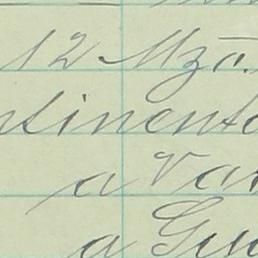 12 Mzo.
ntinenta
a Va
a Gu